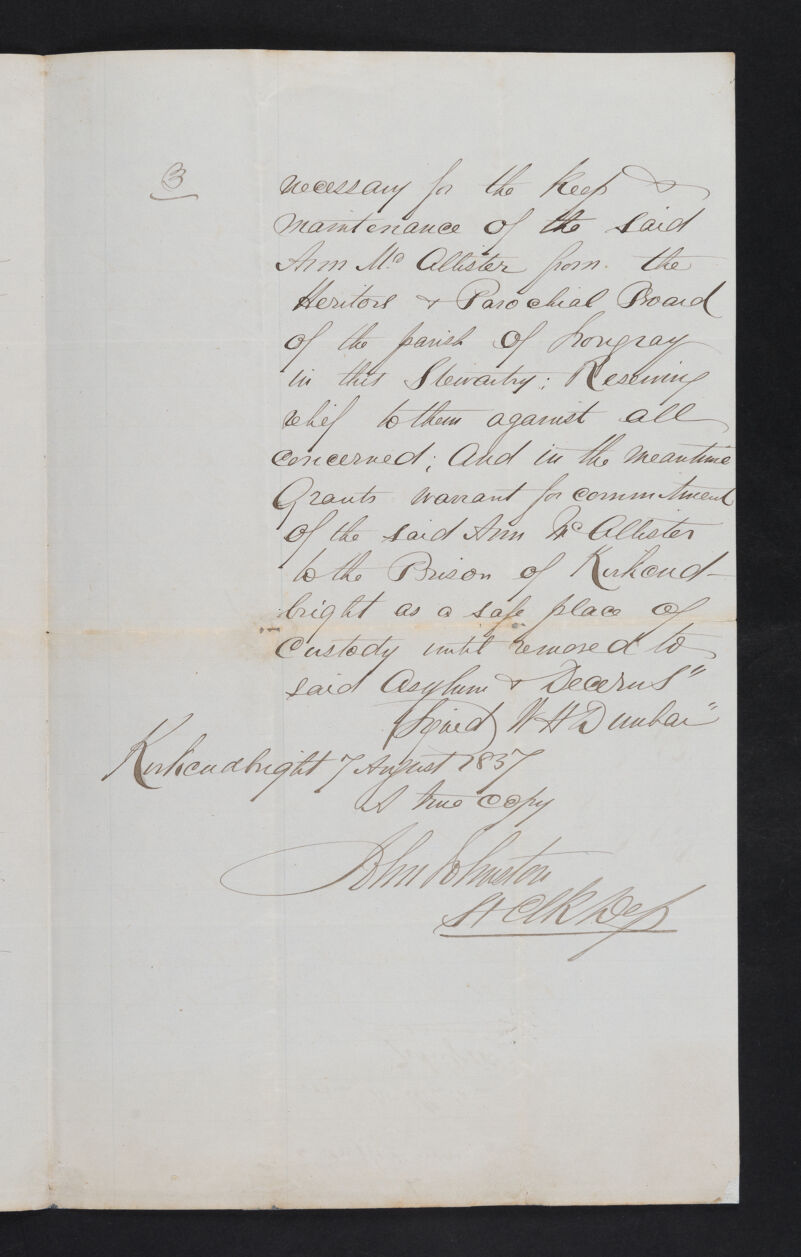 3
necessary for the Keep &
maintenance of the said
Ann Mc Allister from the
Heritors & Parochial Board
of the parish of Irongray
in this Stewartry; Reserving
relief to them against all
concerned; And in the meantime
Grants warrant for commitment
of the said Ann Mc Allister
to the Prison of Kirkcud-
bright as a safe place of
Custody until removed to
said Asylum & Decerns"
(Signed) W H Dunbar"
Kirkcudbright 7 August 1857
A true copy
John Johnston
St Clk Dep